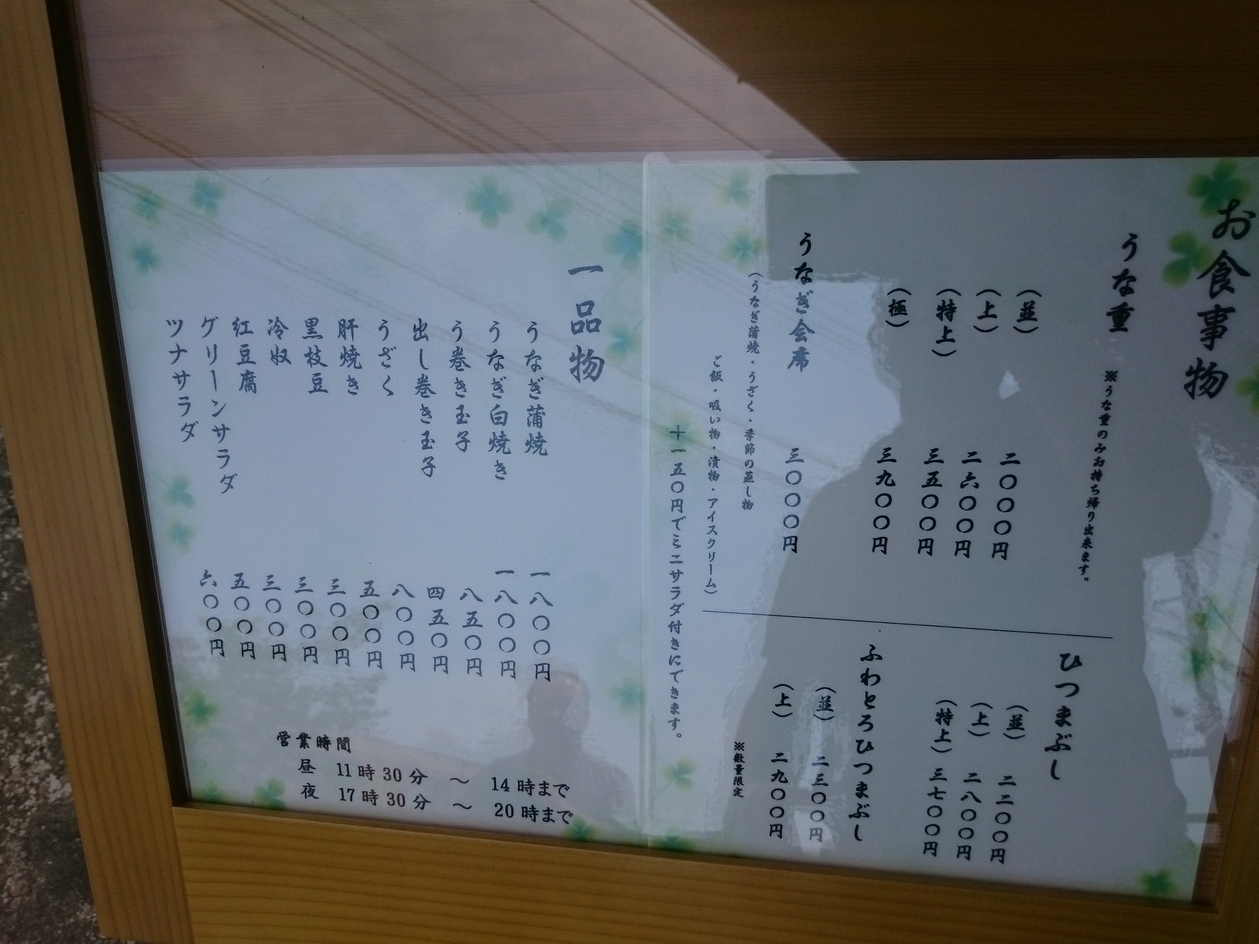 お食事物
うな重
※うな重のみお持ち帰り出来ます。
（並） 二〇〇〇円
（上） 二六〇〇円
（特上） 三五〇〇円
（極） 三九〇〇円
うなぎ会席 三〇〇〇円
（うなぎ蒲焼・うざく・季節の蒸し物
ご飯・吸い物・漬物・アイスクリーム）
ひつまぶし
（並） 二二〇〇円
（上） 二八〇〇円
（特上） 三七〇〇円
ふわとろひつまぶし
（並） 二三〇〇円
（上） 二九〇〇円
※数量限定
＋一五〇円でミニサラダ付きにできます。
一品物
うなぎ蒲焼 一八〇〇円
うなぎ白焼き 一八〇〇円
う巻き玉子 八五〇円
出し巻き玉子 四五〇円
うざく 八〇〇円
肝焼き 五〇〇円
黒枝豆 三〇〇円
冷奴 三〇〇円
紅豆腐 三〇〇円
グリーンサラダ 五〇〇円
ツナサラダ 六〇〇円
営業時間
昼 11時30分 〜 14時まで
夜 17時30分 〜 20時まで